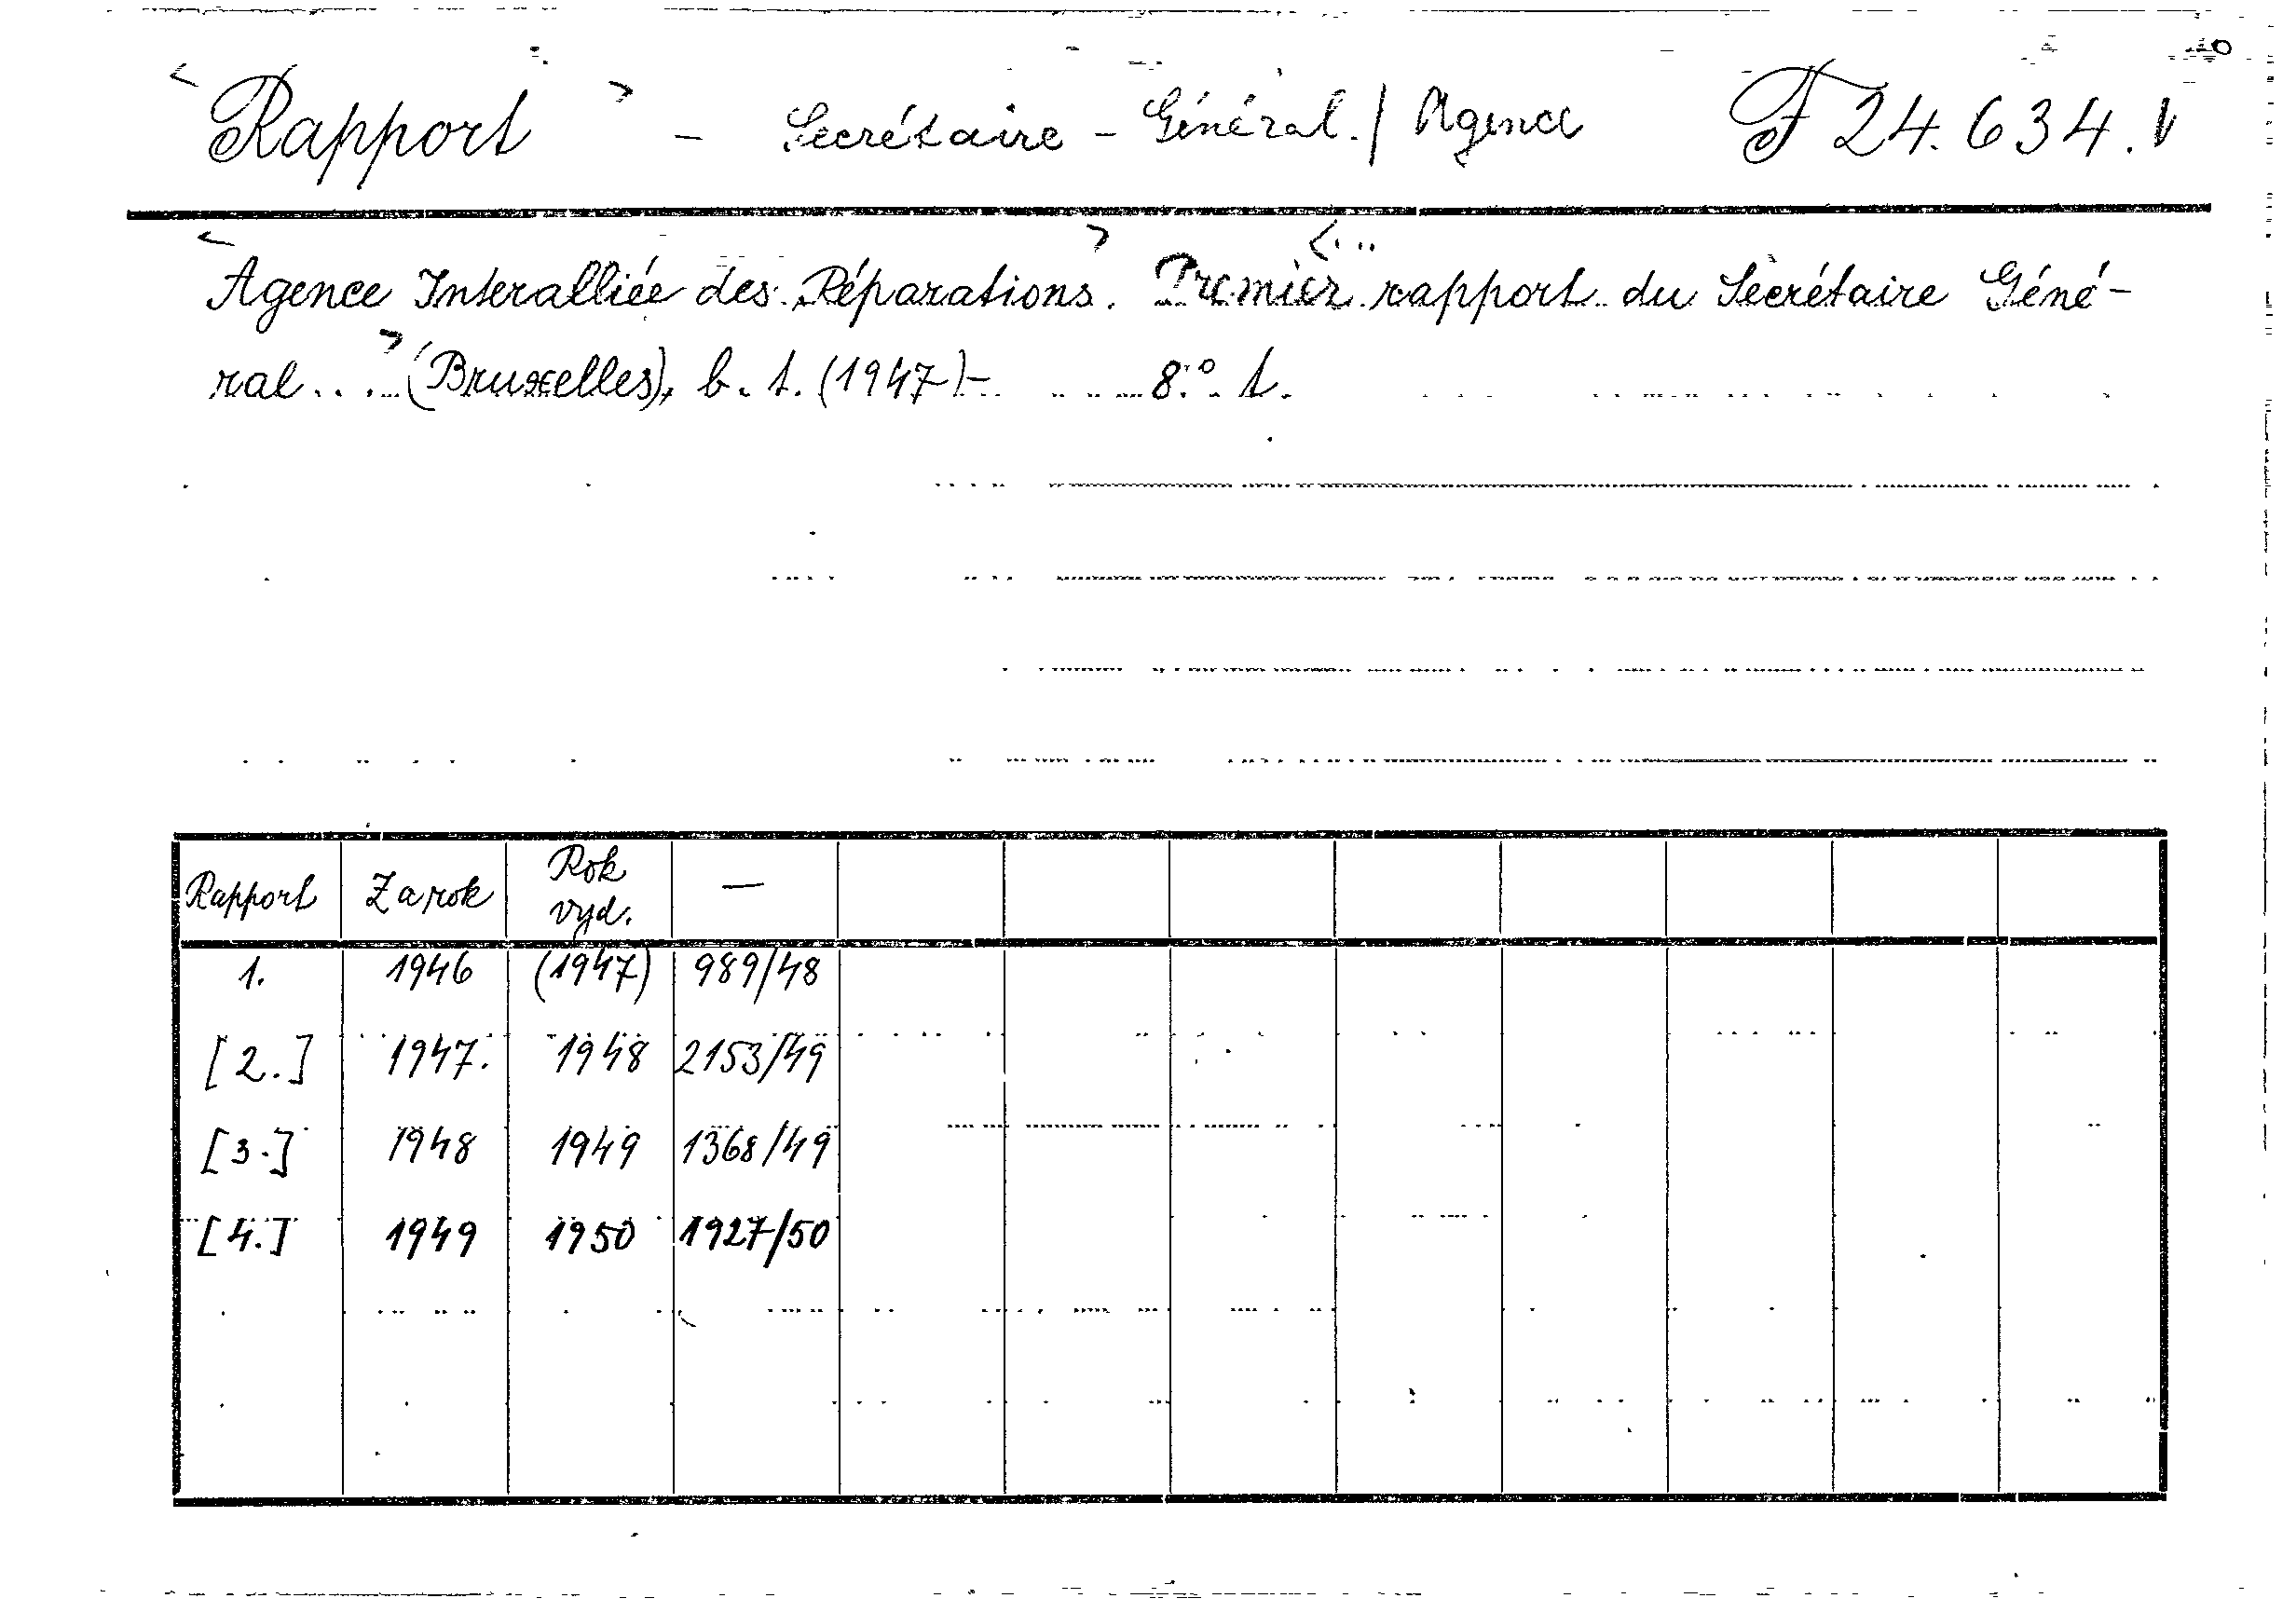 <Rapport> - Secrétaire-Général./Agence F 24.634.V
<Agence Interalliée des Réparations>. Premier <...rapport du Secrétaire Géné-
ral...> (Bruxelles), b. t. (1947)- 8.° t.
Rapport Za rok Rok vyd. —
1. 1946 (1947) 989/48
[2.] 1947. 1948 2153/49
[3.] 1948 1949 1368/49
[4.] 1949 1950 1927/50